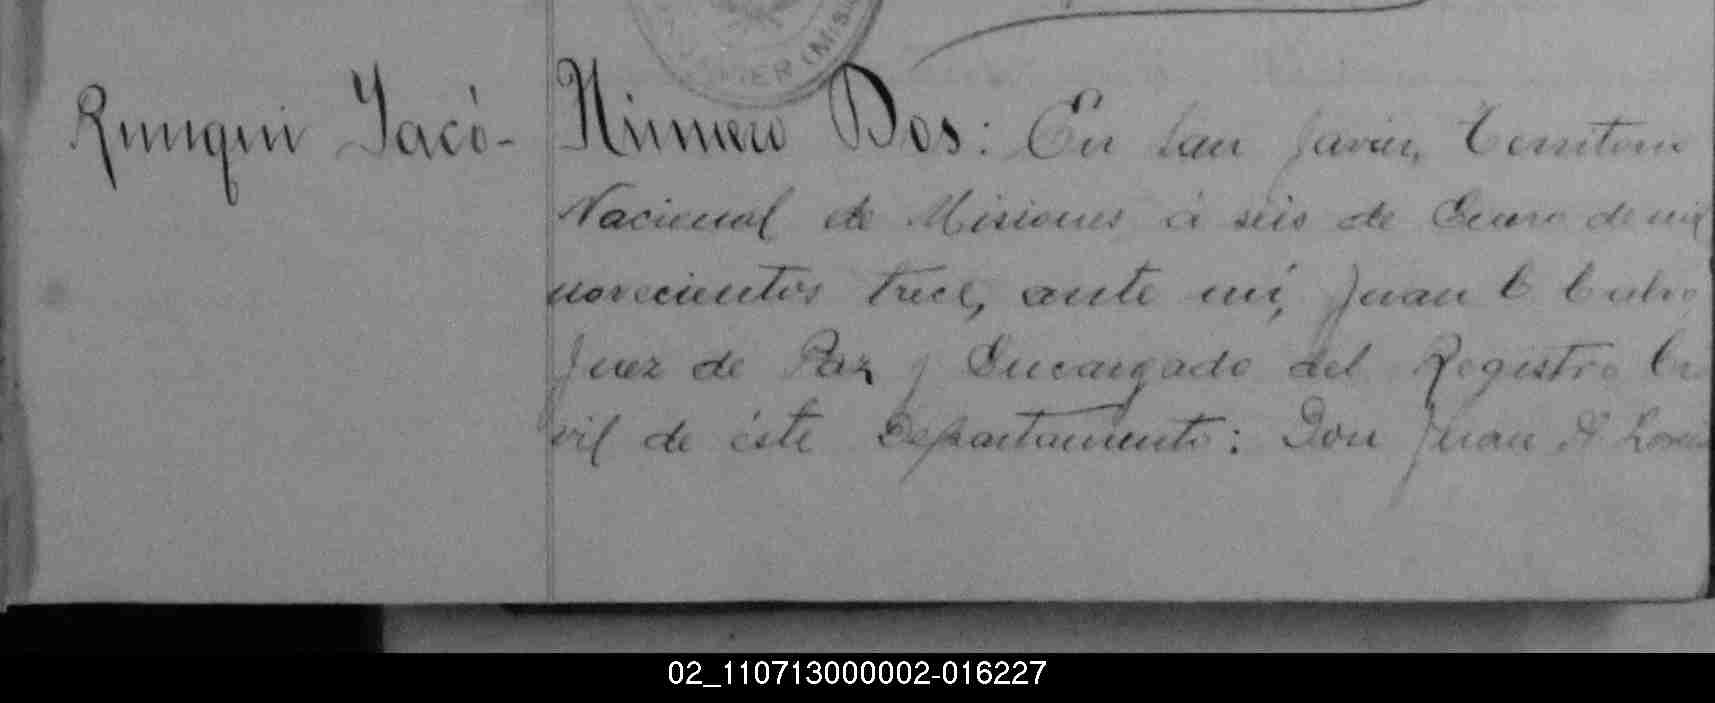 Número Dos: En San Javier, Territorio
Nacional de Misiones á seis de Enero de mil
novecientos trece, ante mí, Juan C
Juez de Paz y Encargado del Registro Ci
vil de éste Departamento: Don Juan A
02_110713000002-016227